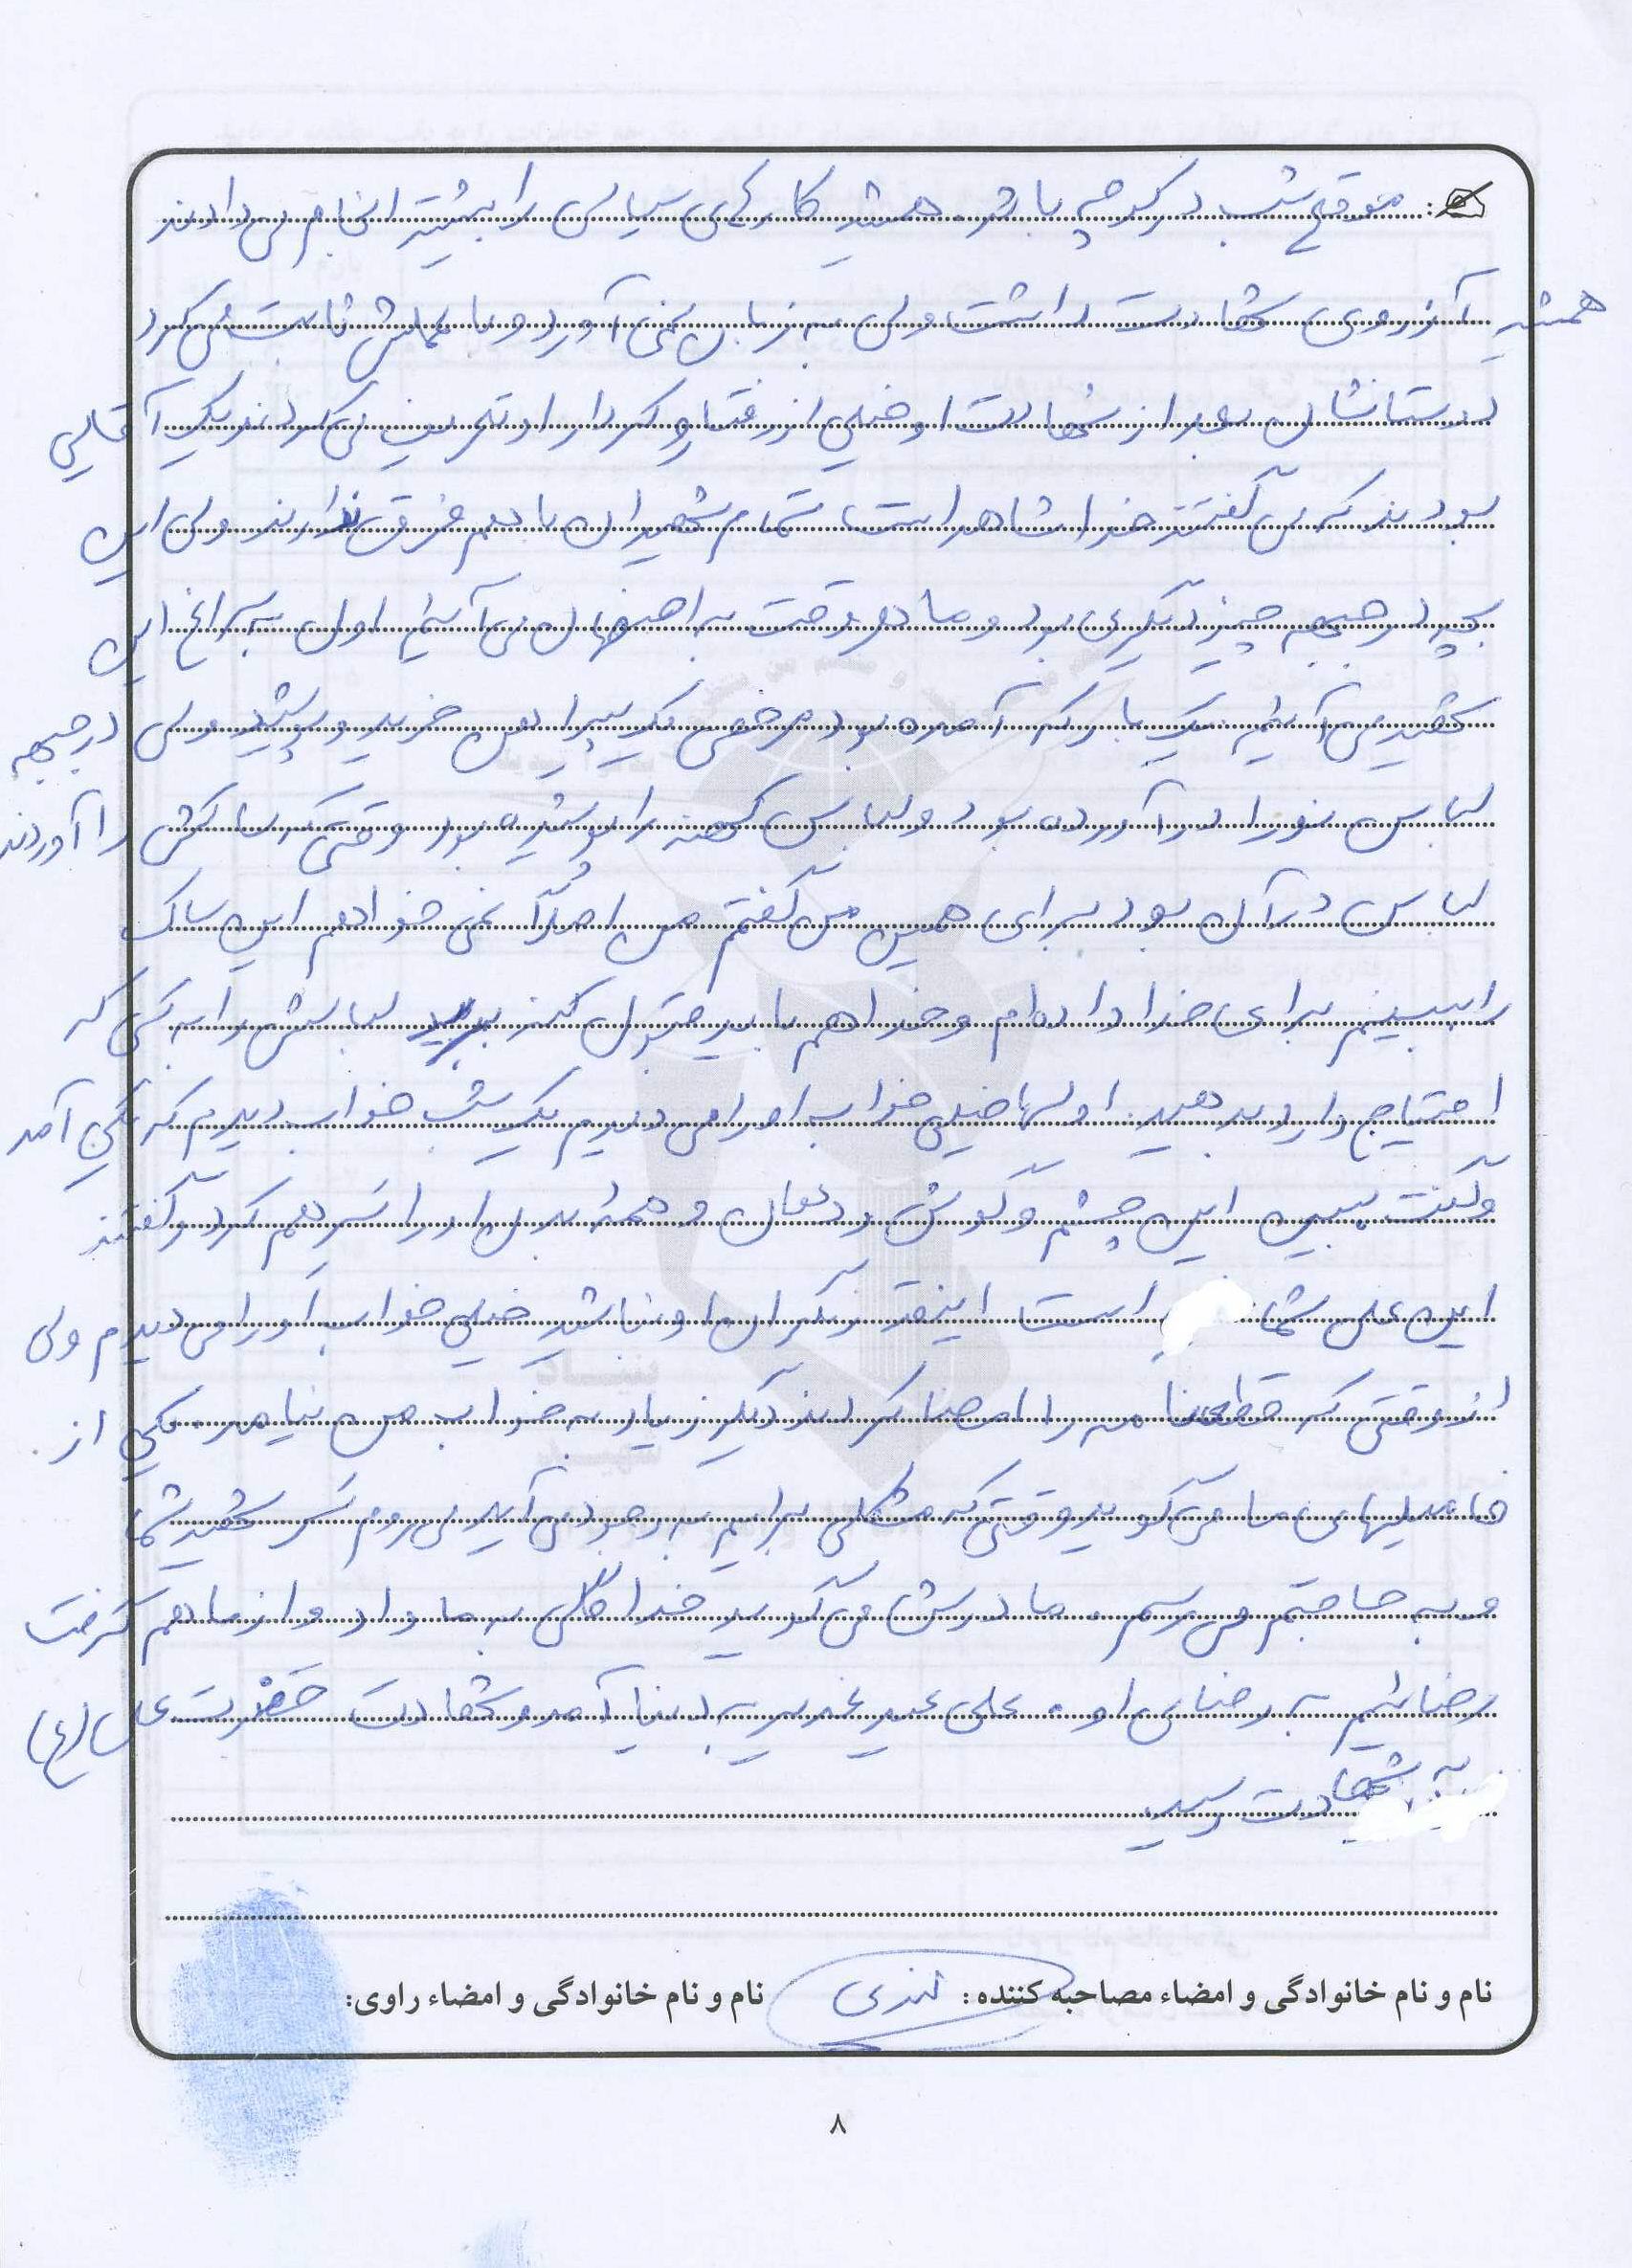 موقع شب در کوچه باشد. همیشه کارهای سیاسی را بیشتر انجام می دادند
همیشه آرزوی شهادت داشت ولی به زبان نمی آورد و با عملش ثابت می کرد
دوستانشان بعد از شهادت او خیلی از رفتار و کردار او تعریف می کردند یک آقایی
بودند که می گفتند خدا شاهد است تمام شهیدان با هم فرق ندارند ولی این
بچه در جبهه چیز دیگری بود و ما هر وقت به اصفهان می آئیم اول به سراغ این
شهید می آئیم یک بار که آمده بود مرخصی یک پیراهن خرید و پوشید ولی در جبهه
لباس نو را درآورده بود و لباس کهنه را پوشیده بود وقتی که ساکش را آوردند
لباس در آن بود برای همین من گفتم من اصلاً نمی خواهم این ساک
را ببینم برای خدا داده ام و خدا هم باید قبول کند ببرید لباسش را به کسی که
احتیاج دارد بدهید. اولها خیلی خواب او را می دیدم یک شب خواب دیدم که یکی آمد
و گفت ببین این چشم و گوش و دهان و همه بدن او را سر هم کرد و گفتند
این علی شما است اینقدر نگران او نباشید خیلی خواب او را می دیدم ولی
از وقتی که قطعنامه را امضا کردند دیگر زیاد به خواب من نیامد. یکی از
فامیلهای ما می گوید وقتی که مشکلی برایم به وجود می آید می روم سر شهید شما
و به حاجتم می رسم. مادرش می گوید خدا گلی به ما داد و از ما هم گرفت
رضائیم به رضای او. علی عید غدیر به دنیا آمد و شهادت حضرت علی (ع)
به شهادت رسید
نام و نام خانوادگی و امضاء مصاحبه کننده: نام و نام خانوادگی و امضاء راوی:
۸